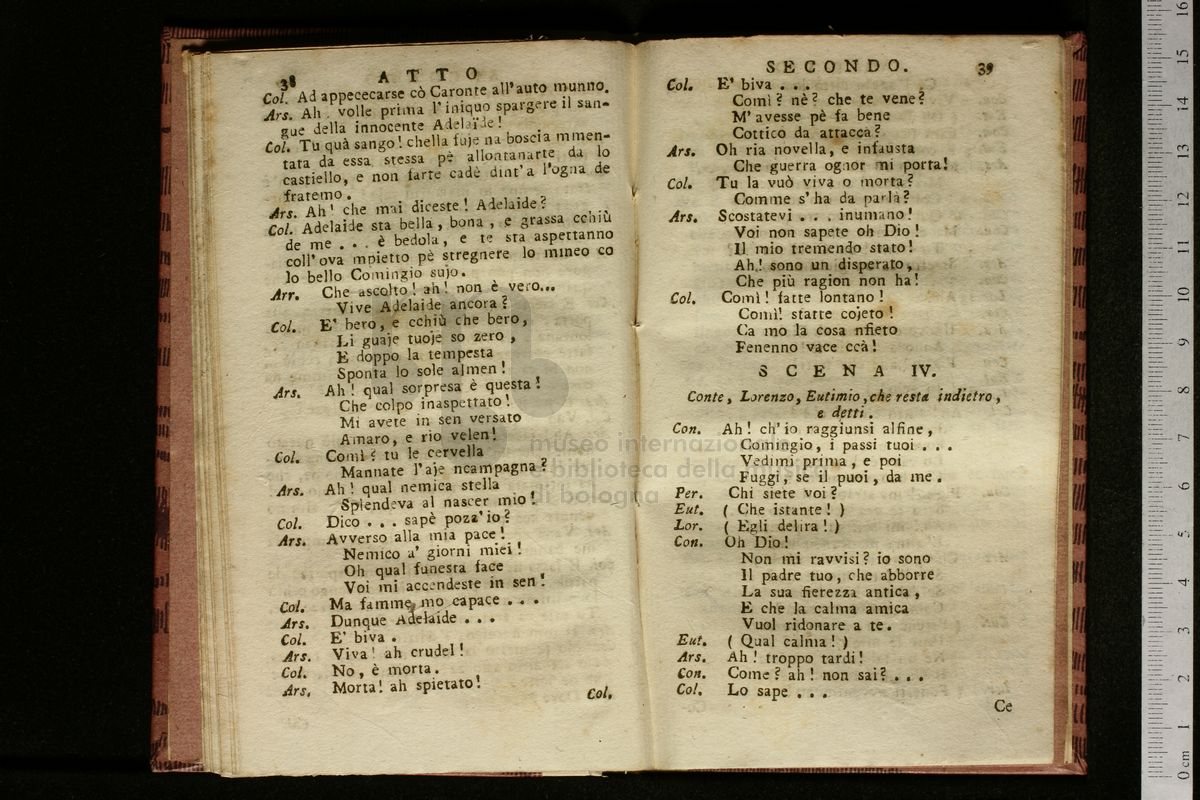 38 ATTO
Col. Ad appececarse cò Caronte all'auto munno.
Ars. Ah! volle prima l'iniquo spargere il san-
gue della innocente Adelaide!
Col. Tu quà sango! chella fuje na boscia mmen-
tata da essa stessa pè allontanarte da lo
castiello, e non farte cadè dint'a l'ogna de
fratemo.
Ars. Ah! che mai diceste! Adelaide?
Col. Adelaide sta bella, bona, e grassa cchiù
de me . . . è bedola, e te sta aspettanno
coll'ova mpietto pè stregnere lo mineo co
lo bello Comingio sujo.
Arr. Che ascolto! ah! non è vero...
Vive Adelaide ancora?
Col. E' bero, e cchiù che bero,
Li guaje tuoje so zero,
E doppo la tempesta
Sponta lo sole almen!
Ars. Ah! qual sorpresa è questa!
Che colpo inaspettato!
Mi avete in sen versato
Amaro, e rio velen!
Col. Comì? tu le cervella
Mannate l'aje ncampagna?
Ars. Ah! qual nemica stella
Splendeva al nascer mio!
Col. Dico . . . sapè pozz'io?
Ars. Avverso alla mia pace!
Nemico a' giorni miei!
Oh qual funesta face
Voi mi accendeste in sen!
Col. Ma famme mo capace . . .
Ars. Dunque Adelaide . . .
Col. E' biva.
Ars. Viva! ah crudel!
Col. No, è morta.
Ars. Morta! ah spietato!
Col.
SECONDO. 39
Col. E' biva . . .
Comì? nè? che te vene?
M'avesse pè fa bene
Cottico da attacca?
Ars. Oh ria novella, e infausta
Che guerra ognor mi porta!
Col. Tu la vuò viva o morta?
Comme s'ha da parlà?
Ars. Scostatevi . . . inumano!
Voi non sapete oh Dio!
Il mio tremendo stato!
Ah! sono un disperato,
Che più ragion non ha!
Col. Comì! fatte lontano!
Comì! statte cojeto!
Ca mo la cosa nfieto
Fenenno vace ccà!
SCENA IV.
Conte, Lorenzo, Eutimio, che resta indietro,
e detti.
Con. Ah! ch'io raggiunsi alfine,
Comingio, i passi tuoi . . .
Vedimi prima, e poi
Fuggi, se il puoi, da me.
Per. Chi siete voi?
Eut. ( Che istante! )
Lor. ( Egli delira! )
Con. Oh Dio!
Non mi ravvisi? io sono
Il padre tuo, che abborre
La sua fierezza antica,
E che la calma amica
Vuol ridonare a te.
Eut. ( Qual calma! )
Ars. Ah! troppo tardi!
Con. Come? ah! non sai? . . .
Col. Lo sape . . .
Ce
museo internazionale
biblioteca della musica
di bologna
0 cm 1 2 3 4 5 6 7 8 9 10 11 12 13 14 15 16